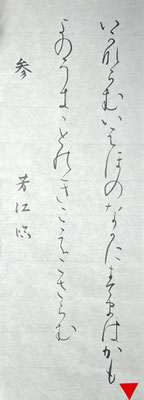 いかならむいはほのなかにすまはかも
よのうきことのきこえこさらむ
参 芳江臨